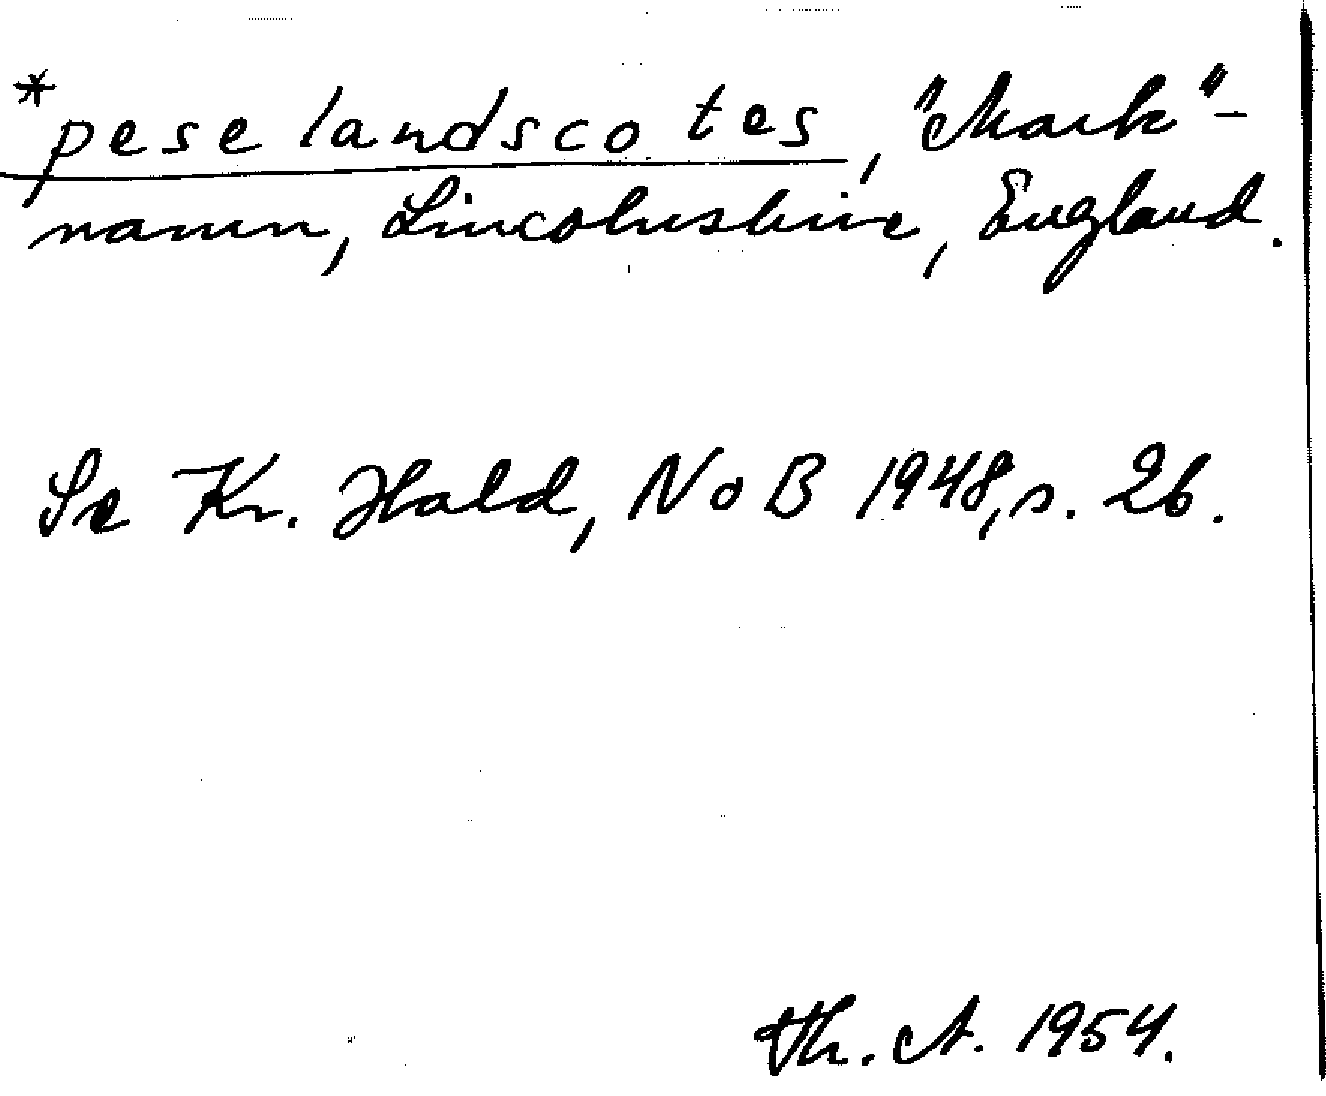 *peselandscotes, "Mark"-
namn, Lincolnshire, England.
Se Kr. Hald, NoB 1948, s. 26.
Th. A. 1954.